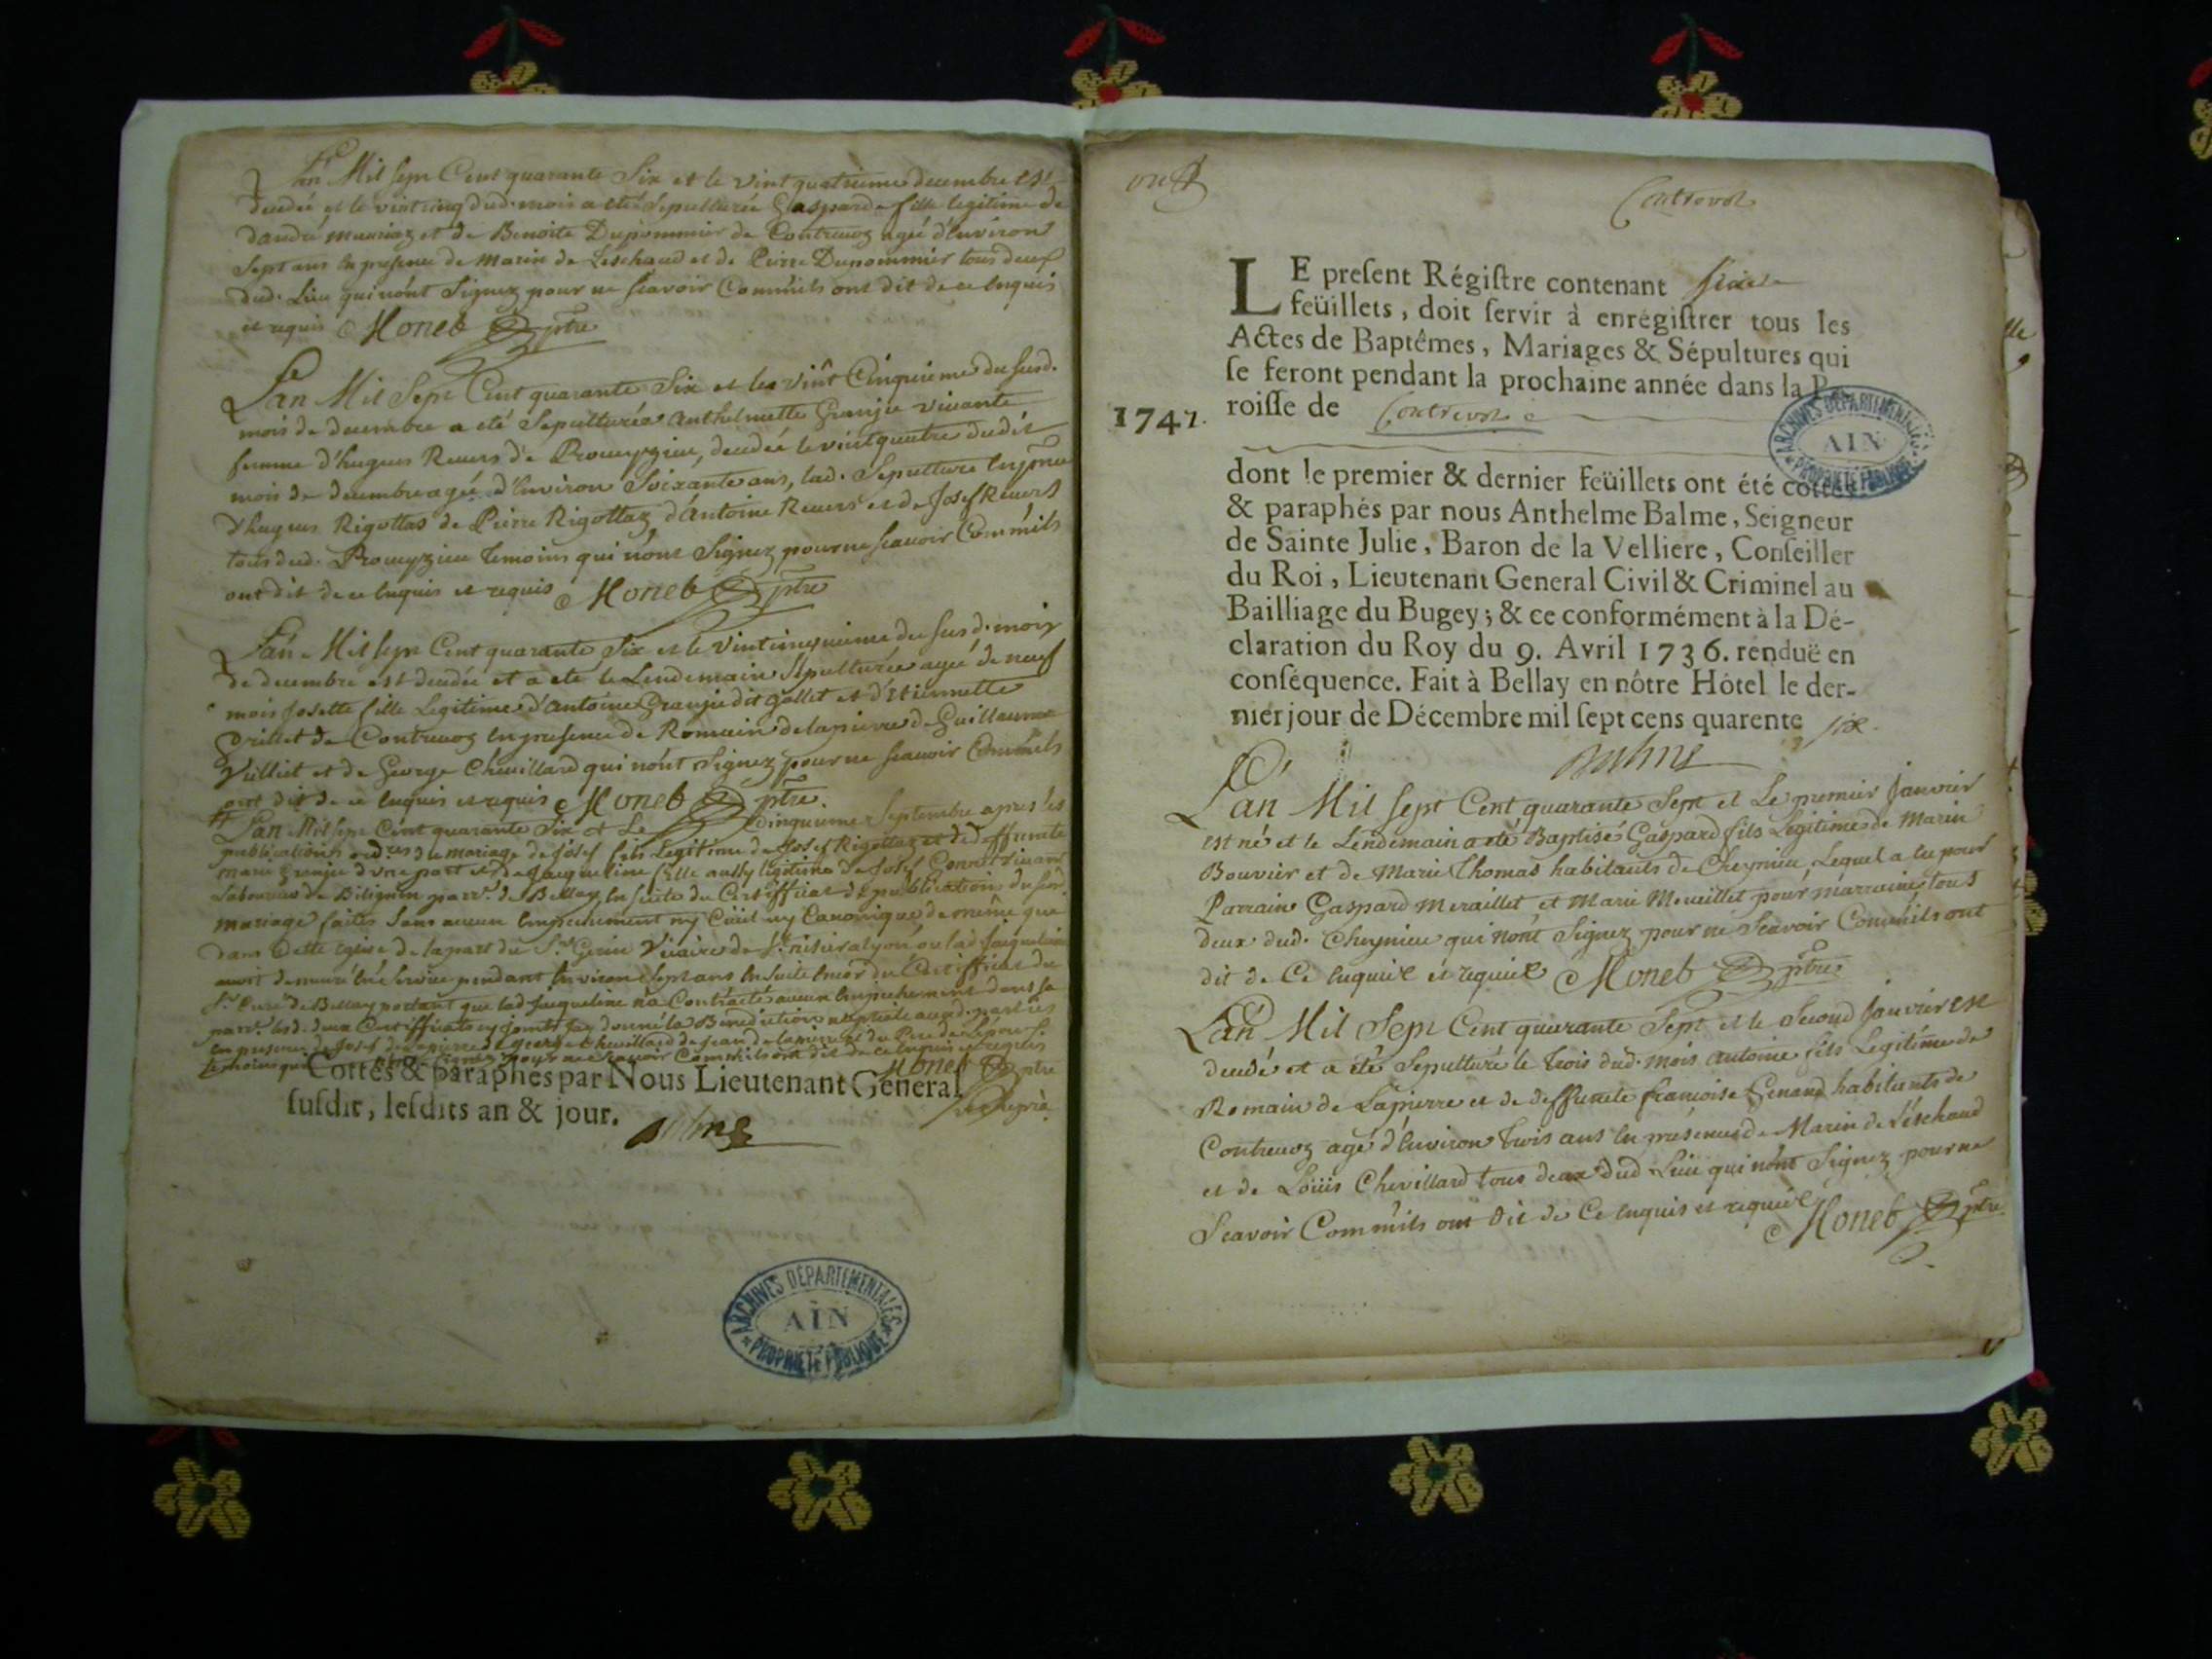 L'an Mil sept Cent quarante Six et le vint quatrieme decembre est
decedée et le vintcinq dud. mois a eté Sepulturée Gasparde fille legitime de
d'andré meuriaz et de Benoite Dupommier de Contrevoz agée d'environ
Sept ans en presence de Marin de Leschaud et de Pierre Dupommier tous deux
dud. Lieu qui n'ont Signez pour ne scavoir Comm'ils ont dit de ce enquis
et requis Monet ptre
L'an Mil Sept Cent quarante Six et le vint Cinquieme du susd.
mois de decembre a eté Sepulturée Anthelmette Granjie vivante
femme d'hugues Revers de Promeyzieu, decedée le vintquatre dudit
mois de decembre agée d'environ Soixante ans, lad. Sepulture en pnce
d'hugues Rigottaz de Pierre Rigottaz d'Antoine Revers et de Josef Revers
tous dud. Promeyzieu temoins qui n'ont Signez pour ne scavoir Comm'ils
ont dit de ce enquis et requis Monet ptre
L'an Mil sept Cent quarante Six et le vintcinquieme du susd. mois
de decembre est decedée et a eté le Lendemain Sepulturée agée de neuf
mois Josette fille Legitime d'Antoine Granjie dit gollet et d'Etiennette
Prillet de Contrevoz en presence de Romain delapierre de Guillaume
Vulliet et de George Chevillard qui n'ont Signez pour ne scavoir Comm'ils
ont dit de ce enquis et requis Monet ptre.
L'an Mil sept Cent quarante Six et Le Cinquieme Septembre apres les
publications de mariage de Josef fils Legitime de Josef Rigottaz et de deffunte
marie granjie d'une part et de Jacqueline fille aussy legitime de Josef vivant
Laboureur de Billignin parr. de Bellay en suite du Certifficat de publications du susd.
mariage faites Sans aucun empechement ny Civil ny Canonique de même que
dans Cette Eglise de la part du Sr. Vicaire de St. nisier a lyon ou lad Jaqueline
avoit demeuré en service pendant environ Sept ans en suite encor du Certifficat du
Sr. Curé de Bellay portant que lad Jaqueline n'a Contracté aucun empechement dans sa
parr. lesd. deux Certifficats cy joints Jay donné la Benediction nuptiale auxd. parties
en presence de Josef delapierre de George Chevillard de Jean delapierre
temoins qui n'ont Signez pour ne scavoir Comm'ils ont dit de ce enquis et requis
Monet ptre
Cottés & paraphés par Nous Lieutenant Géneral
susdit, lesdits an & jour.
Balme
ARCHIVES DEPARTEMENTALES
AIN
PROPRIETE PUBLIQUE
Contrevoz
LE present Régistre contenant
feüillets, doit servir à enrégistrer tous les
Actes de Baptêmes, Mariages & Sépultures qui
se feront pendant la prochaine année dans la Pa-
roisse de Contrevoz
1747.
ARCHIVES DEPARTEMENTALES
AIN
PROPRIETE PUBLIQUE
dont le premier & dernier feüillets ont été cottés
& paraphés par nous Anthelme Balme, Seigneur
de Sainte Julie, Baron de la Velliere, Conseiller
du Roi, Lieutenant General Civil & Criminel au
Bailliage du Bugey; & ce conformément à la Dé-
claration du Roy du 9. Avril 1736. renduë en
conséquence. Fait à Bellay en nôtre Hôtel le der-
nier jour de Décembre mil sept cens quarente six.
Balme
L'an Mil sept Cent quarante Sept et Le premier Janvier
est né et le Lendemain a eté Baptisé Gaspard fils Legitime de Marin
Bouvier et de Marie Thomas habitants de Cheynieu, Lequel a eu pour
Parrain Gaspard Meraillet et Marie Meraillet pour marraine, tous
deux dud. Cheynieu qui n'ont Signez pour ne Scavoir Comm'ils ont
dit de Ce enquis et requis Monet ptre
L'an Mil Sept Cent quarante Sept et le Second Janvier est
decedé et a eté Sepulturé le trois dud. mois Antoine fils Legitime de
Romain de Lapierre et de deffunte francoise Genand habitants de
Contrevoz agé d'environ trois ans en presence de Marin de Leschaud
et de Loüis Chevillard tous deux dud Lieu qui n'ont Signez pour ne
Scavoir Comm'ils ont dit de Ce enquis et requis Monet ptre.